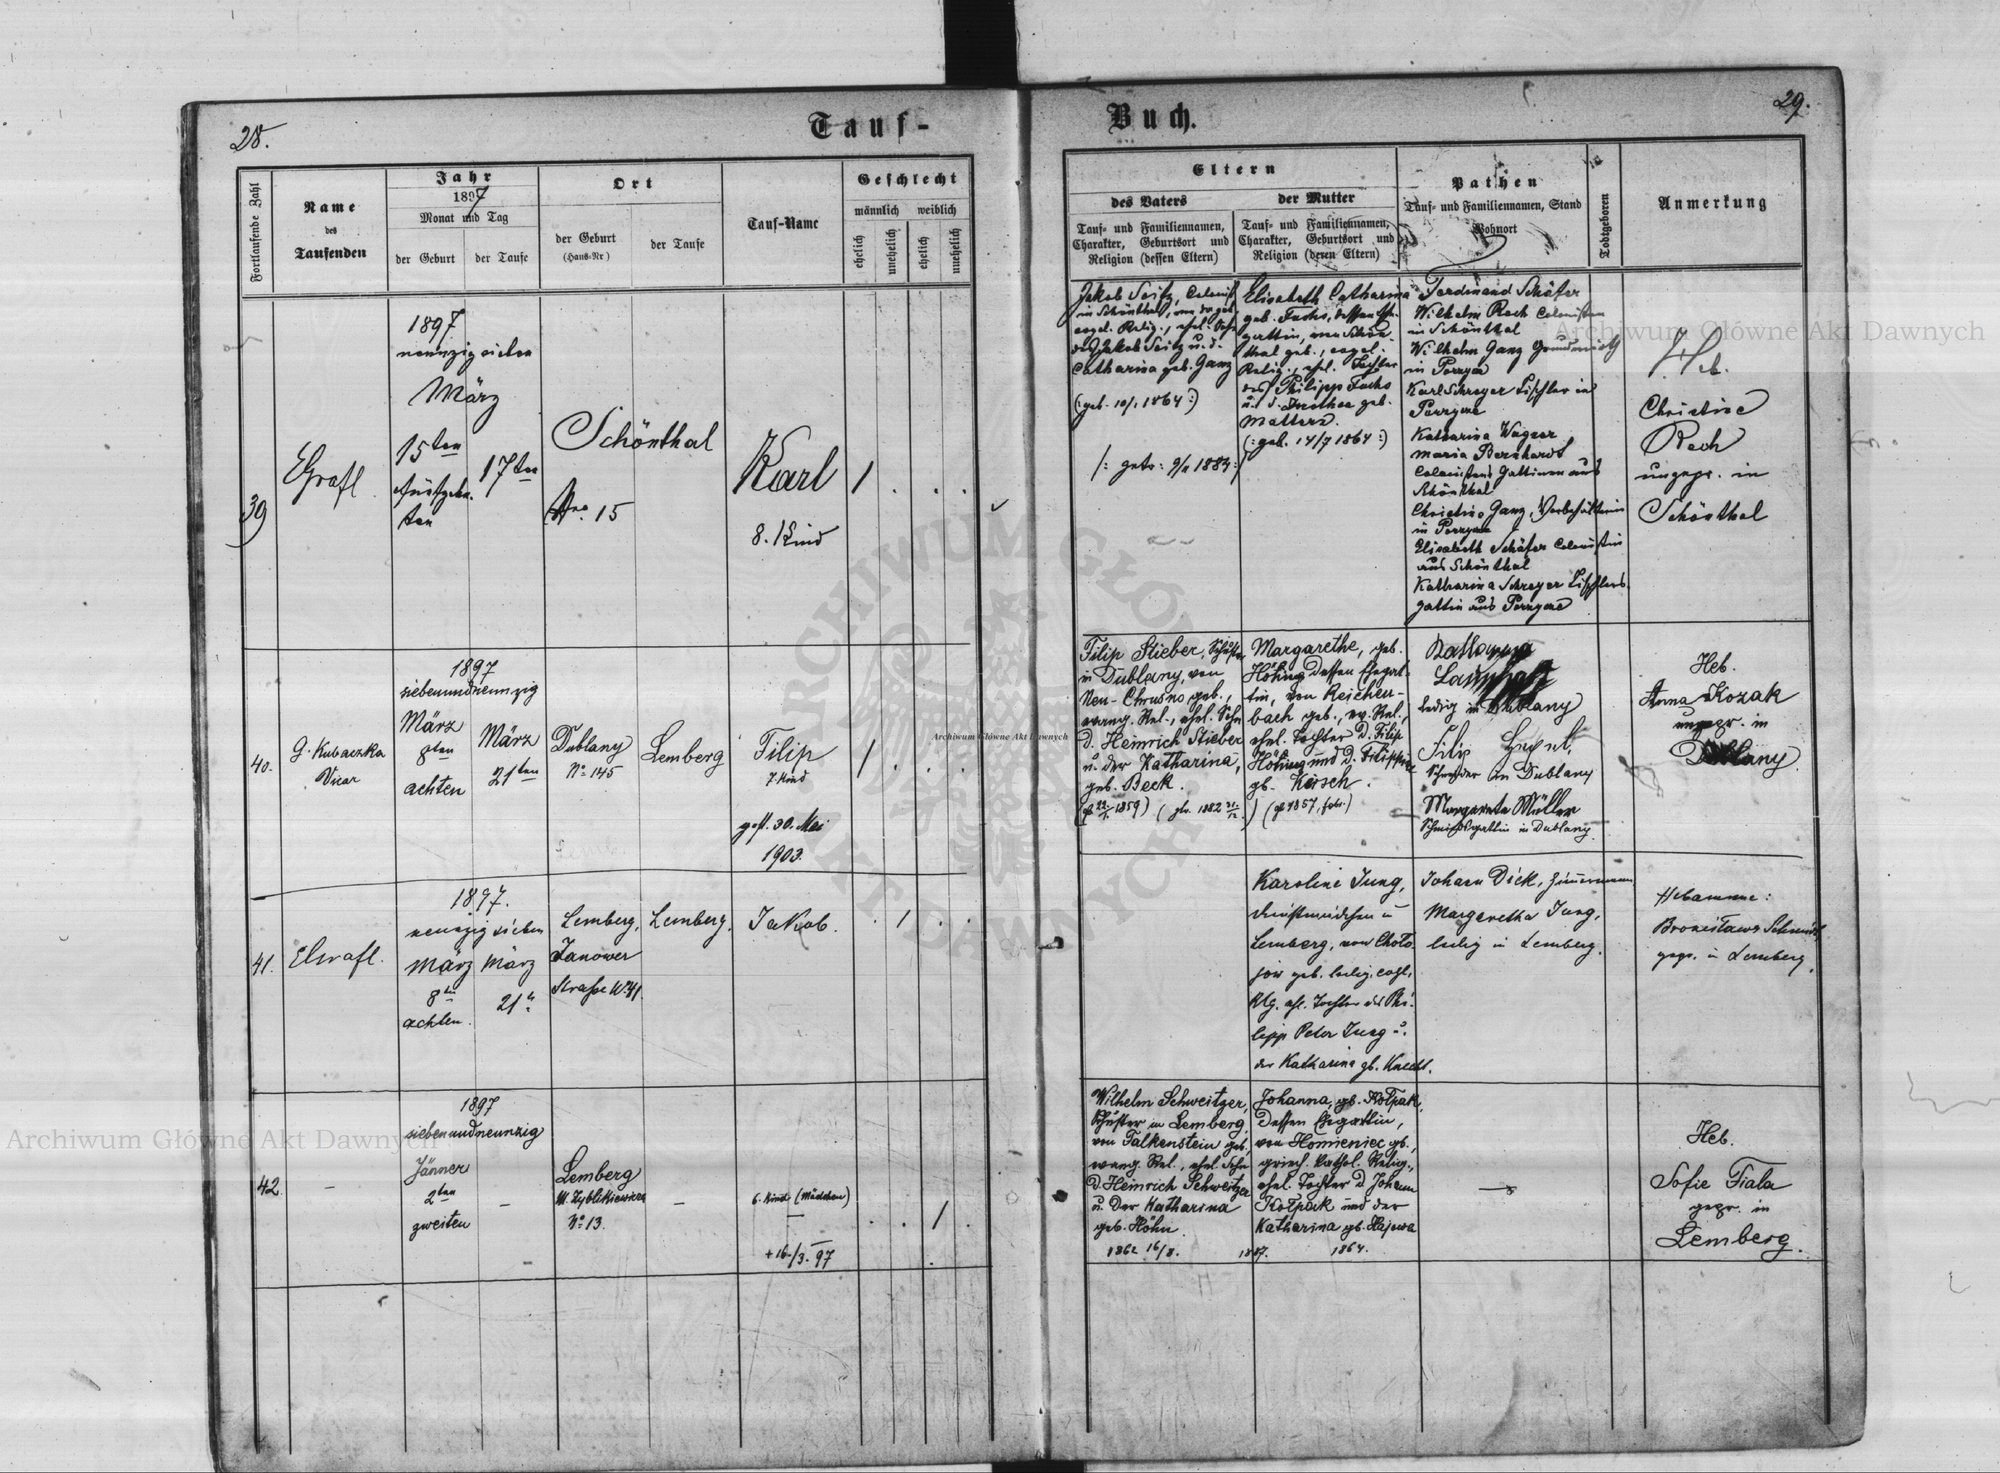 28.
Tauf-
Fortlaufende Zahl
Name
des
Taufenden
Jahr
1897
Monat und Tag
der Geburt
der Taufe
Ort
der Geburt
(Haus-Nr)
der Taufe
Tauf-Name
Geschlecht
männlich
weiblich
ehelich
unehelich
ehelich
unehelich
39
1897
neunzig sieben
März
15ten
fünfzehn-
ten
17ten
Schönthal
Nro 15
Karl
8. Kind
1
40.
G. Kubaczka
Vicar
1897
siebenundneunzig
März
8ten
achten
März
21ten
Dublany
No 145
Lemberg
Filip
7. Kind
gest. 30. Mai
1903.
1
41.
1897.
neunzig sieben
März
8ten
achten
März
21
Lemberg,
Janower
Straße No 41
Lemberg.
Jakob.
1
42.
1897
siebenundneunzig
Jänner
2ten
zweiten
Lemberg
No 13.
6. Kind (Mädchen)
+ 16./3. 97
1
29.
Buch.
Eltern
des Vaters
Tauf- und Familiennamen,
Charakter, Geburtsort und
Religion (dessen Eltern)
der Mutter
Tauf- und Familiennamen,
Charakter, Geburtsort und
Religion (deren Eltern)
Pathen
Tauf- und Familiennamen, Stand
Wohnort
Todtgeboren
Anmerkung
Jakob Seitz, Colonist
in Schönthal, von da geb.
evgel. Relig., ehel. Sohn
des Jakob Seitz u. d.
Catharina geb. Ganz
(: geb. 10/1 1864 :)
Elisabeth Catharina
geb. Fuchs, dessen Ehe-
gattin, von Schön-
thal geb., evgel.
Relig., ehel. Tochter
des Philipp Fuchs
u. d. Dorothea geb.
(: geb. 14/7 1864 :)
Ferdinand Schäfer
Wilhelm Rech Colonisten
in Schönthal
Wilhelm Ganz Grundwirth
in
Karl Schreyer Tischler in
Katharina Wagner
Maria Bernhardt
Colonistens Gattinen aus
Schönthal
Christine Ganz,
in
Elisabeth Schäfer Colonistin
aus Schönthal
Katharina Schreyer Tischlers-
gattin aus
Heb.
Christine
Rech
ungepr. in
Schönthal
Filip Stieber, Schuster
in Dublany, von
Neu-Chrusno geb.,
evang. Rel., ehel. Sohn
d. Heinrich Stieber
u. der Katharina,
geb. Beck.
Margarethe, geb.
Höhing dessen Ehegat-
tin, von Reichen-
bach geb., ev. Rel.,
ehel. Tochter d. Filip
Höhing und d. Filippine
gb. Kirsch.
Ledig in Dublany
Filip
in Dublany
Margarete Müller
Schmiedsgattin in Dublany.
Heb.
Anna Kozak
ungepr. in
Dublany
Karoline Jung,
Dienstmädchen in
Lemberg, von Choto-
jow geb. ledig, evgl.
Rlg. ehl. Tochter des Phi-
lipp Peter Jung u.
der Katharina gb. Knecht.
Johann Dick, Zimmermann
Margaretha Jung,
ledig in Lemberg.
Hebamme:
gepr. in Lemberg.
Wilhelm Schweitzer,
Schuster in Lemberg,
von Falkenstein geb,
evang. Rel., ehel. Sohn
d. Heinrich Schweitzer
u. der Katharina
geb. Höhn.
1862 16/8.
1887.
Johanna, gb. Kołpak,
dessen Ehegattin,
von Homieniec gb.,
griech. kathol. Relig.,
ehel. Tochter d. Johann
Kołpak und der
Katharina gb. Hajowa
1864.
Heb.
Sofie Fiala
gepr. in
Lemberg.
Archiwum Główne Akt Dawnych
Archiwum Główne Akt Dawnych
Archiwum Główne Akt Dawnych